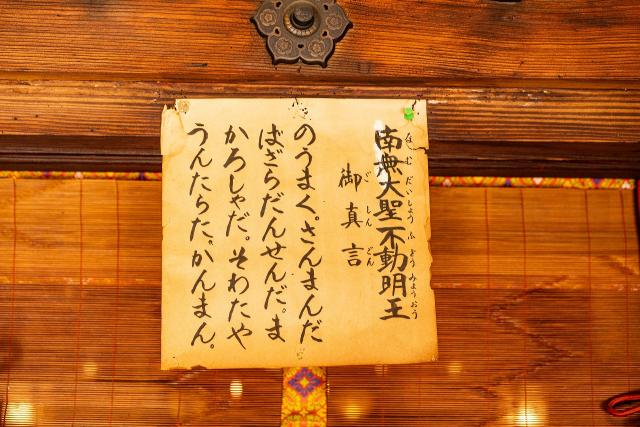 南無大聖不動明王
なむだいしようふどうみようおう
御真言
ごしんごん
のうまく。さんまんだ
ばざらだんせんだ。ま
かろしゃだ。そわたや
うんたらた。かんまん。